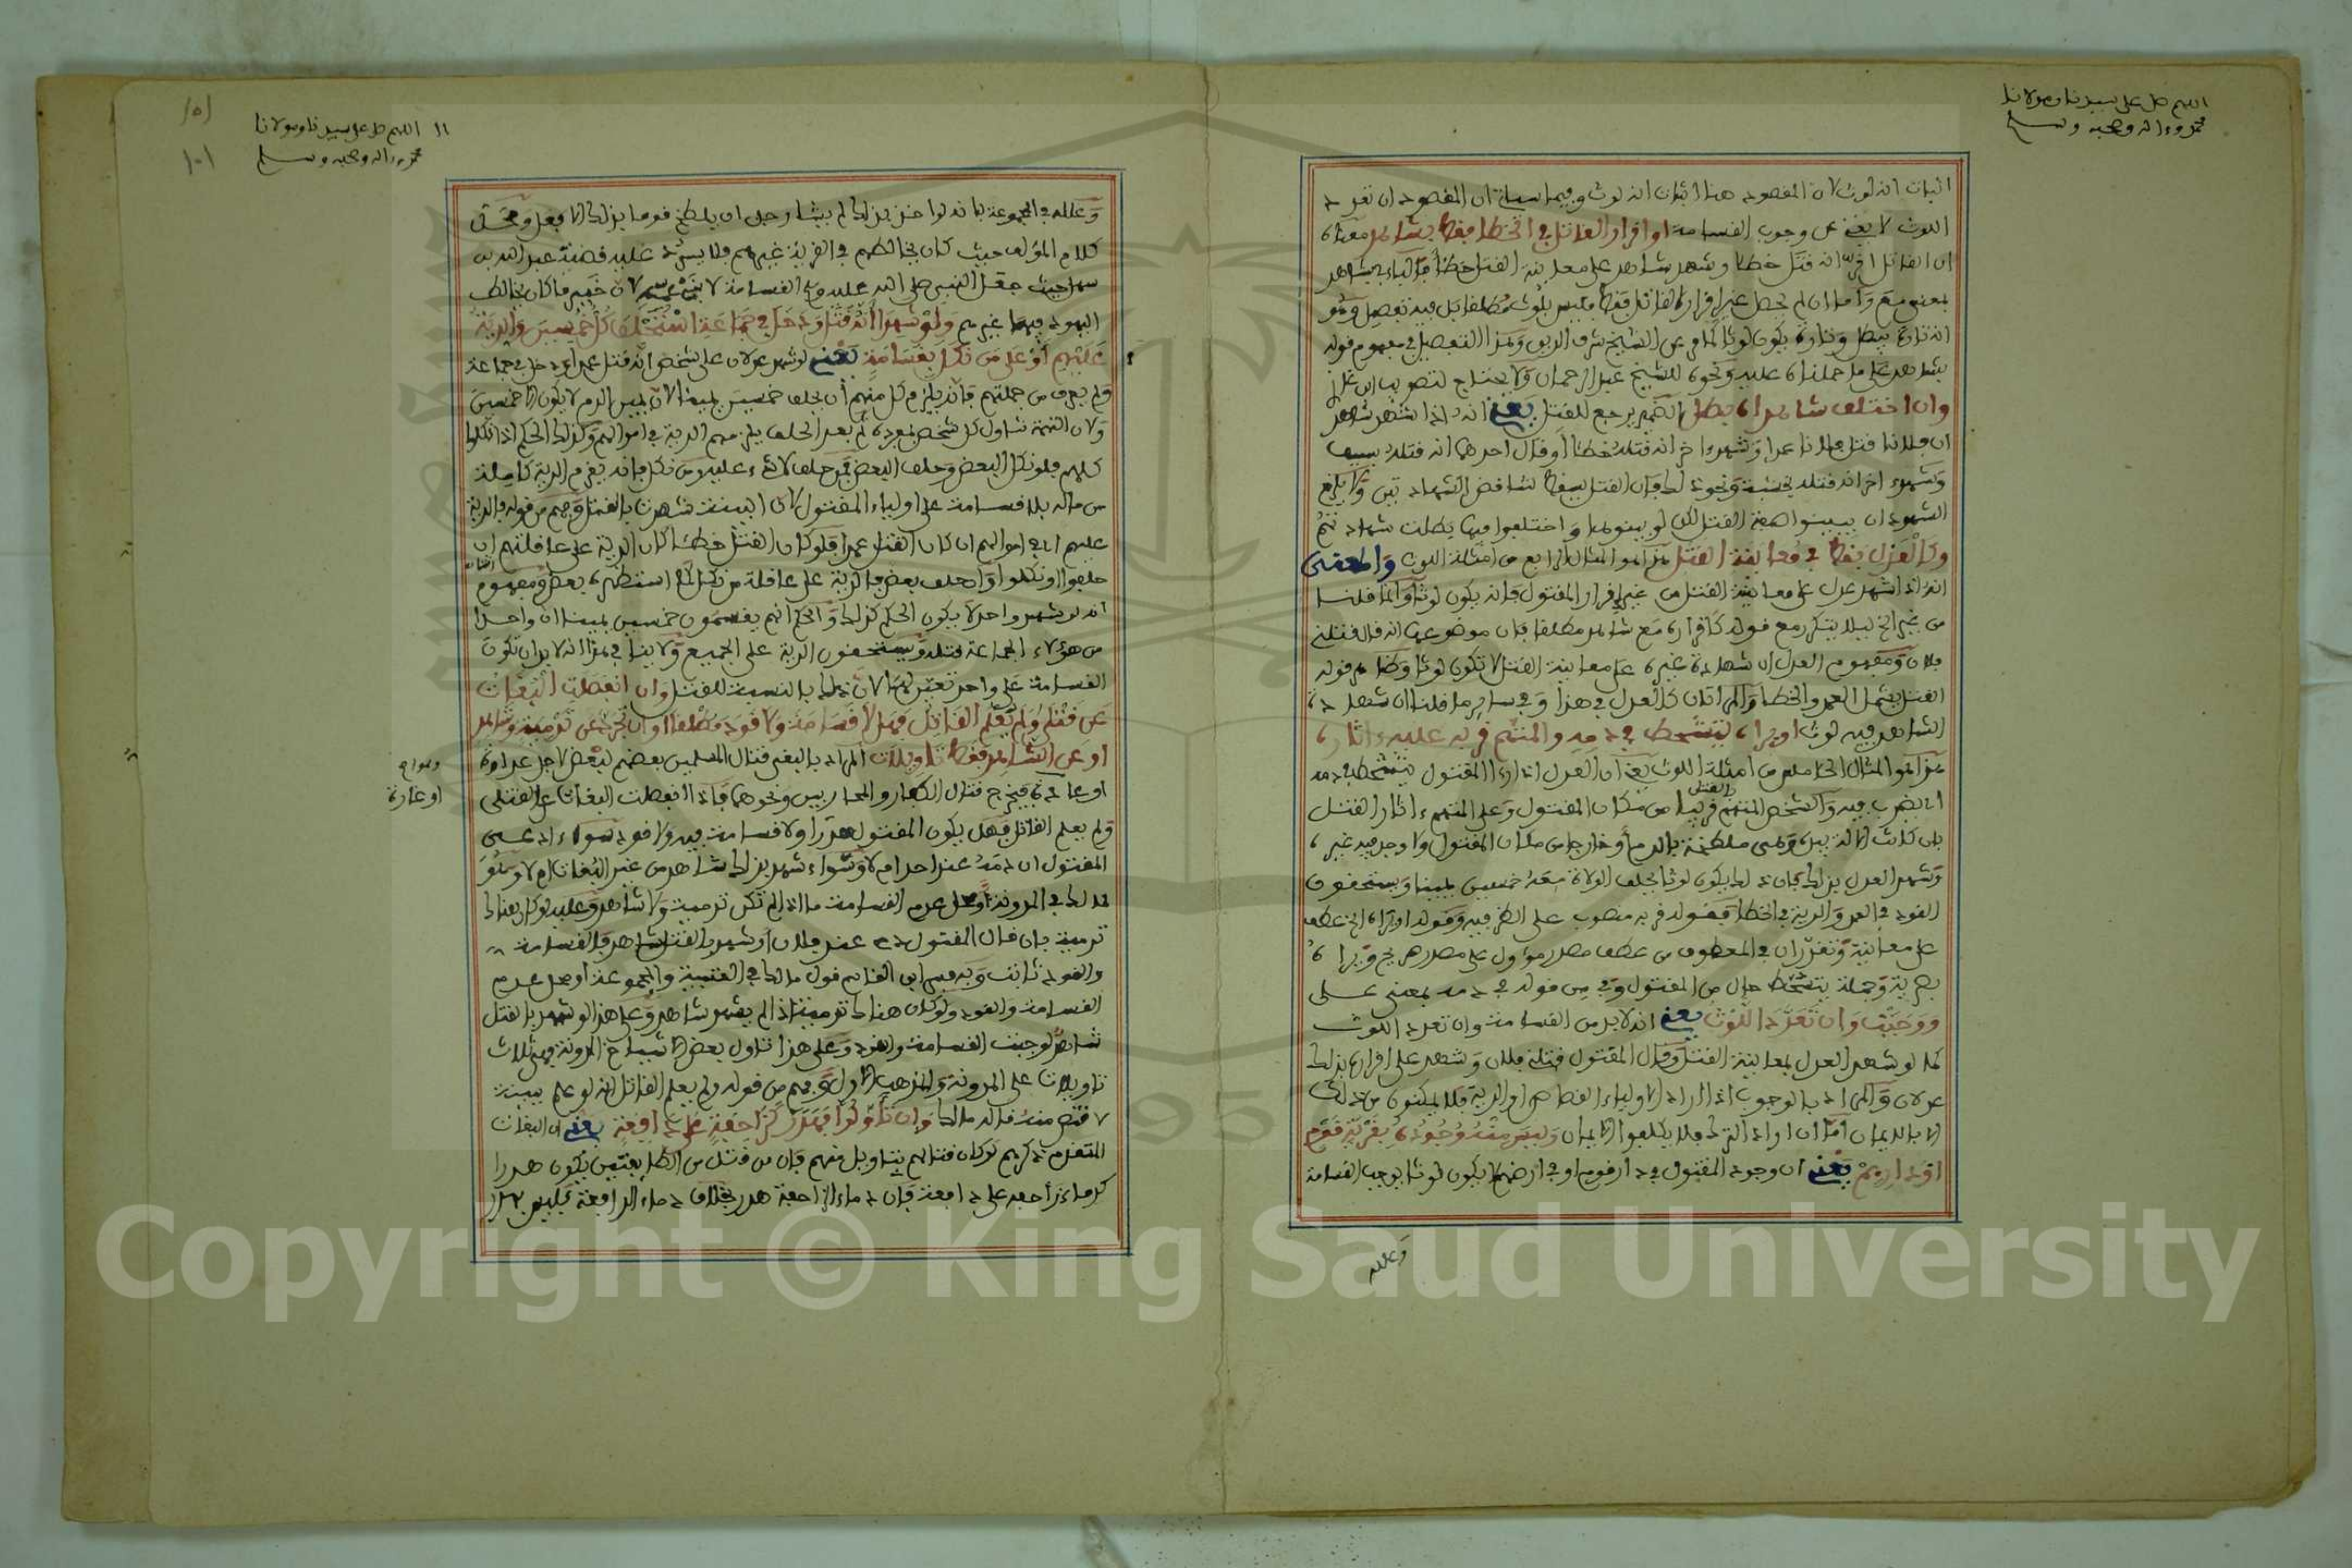 اللهم صل على سيدنا ومولانا
محمد وءاله وصحبه وسلم
اثبات انه لوث لان المقصود هنا اثبات انه لوث وفيما سياتي ان المقصود ان تعدد
اللوث لا يغني عن وجوب القسامة او اقرار القاتل في الخطا فقط بشاهد معناه
ان القاتل اقر انه قتل خطا وشهد شاهد على معاينة القتل خطأ فالباء في بشاهد
بمعنى مع واما ان لم يحصل غير اقرار القاتل فقط فليس بلوث مطلقا بل فيه تفصيل وهو
انه تارة يبطل وتارة يكون لوثا كما مر عن الشيخ شرف الدين وهذا التفصيل في مفهوم قوله
بشاهد على ما حملناه عليه ونحوه للشيخ عبد الرحمان ولا يحتاج لتصويب ابن غازي
وان اختلف شاهداه بطل الضمير يرجع للقتل يعني انه اذا شهد شاهد
ان فلانا قتل فلانا عمدا وشهد ءاخر انه قتله خطا او قال احدهما انه قتله بسيف
وشهد ءاخر انه قتله بخشبة ونحو ذلك فان القتل يسقط لتناقض الشهادتين ولا يلزم
الشهود ان يبينوا صفة القتل لكن لو بينوها واختلفوا فيها بطلت شهادتهم
وكالعدل فقط في معاينة القتل هذا هو المثال الرابع من امثلة اللوث والمعنى
انه اذا شهد عدل على معاينة القتل من غير اقرار المقتول فانه يكون لوثا وانما قلنا
من غير الخ ليلا يتكرر مع قوله كاقراره مع شاهد مطلقا فان موضوعها انه قال قتلني
فلان ومفهوم العدل ان شهادة غيره على معاينة القتل لا تكون لوثا وظاهر قوله
القتل يشمل العمد والخطا والمراتان كالعدل في هذا وفي ساير ما قلنا ان شهادة
الشاهد فيه لوث او يراه يتشحط في دمه والمتهم قربه عليه ءاثاره
هذا هو المثال الخامس من امثلة اللوث يعني ان العدل اذا رءا المقتول يتشحط في دمه
اي يضرب فيه والشخص المتهم بالقتل قريبا من مكان المقتول وعلى المتهم ءاثار القتل
بان كانت الالة بيده وهى ملطخة بالدم او خارجا من مكان المقتول ولا وجد فيه غيره
وشهد العدل بذلك فان ذلك يكون لوثا يحلف الولاة معه خمسين يمينا ويستحقون
القود في العمد والدية في الخطا فقوله قربه منصوب على الظرفية وقوله او يراه الخ عطف
على معاينة وتقدر ان في المعطوف من عطف مصدر مؤول على مصدر صريح ويراه
بصرية وجملة يتشحط حال من المفعول وفي من قوله في دمه بمعنى على
ووجبت وان تعدد اللوث يعني انه لابد من القسامة وان تعدد اللوث
كما لو شهد العدل بمعاينة القتل وقال المقتول قتلني فلان وشهد على اقراره بذلك
عدلان والمراد بالوجوب اذا اراد الاولياء القصاص او الدية فلا يمكنون من ذلك
الا بالايمان اما ان ارادوا الترك فلا يكلفوا الايمان وليس منه وجوده بقرية قوم
او دارهم يعني ان وجود المقتول في دار قوم او في ارضهم لا يكون لوثا يوجب القسامة
وعلله
اللهم صل على سيدنا ومولانا
محمد وءاله وصحبه وسلم
١٥١
١٠١
وعلله في المجموعة بانه لو اخذ بذلك لم يشا رجل ان يلطخ قوما بذلك الا فعل ومحل
كلام المؤلف حيث كان يخالطهم في القرية غيرهم فلا يرد عليه قضية عبد الله بن
سهل حيث جعل النبي صلى الله عليه وسلم القسامة لابني عمه لان خيبر ما كان يخالط
اليهود فيها غيرهم ولو شهد انه قتل ودخل في جماعة استحلف كل خمسين والدية
عليهم او على من نكل بلا قسامة يعني لو شهد عدلان على شخص انه قتل عمدا ودخل في جماعة
ولم يعرف من جملتهم فانه يلزم كل منهم ان يحلف خمسين يمينا لان يمين الدم لا يكون الا خمسين
ولان التهمة تناول كل شخص بمفرده ثم بعد الحلف يلزمهم الدية في اموالهم وكذلك الحكم اذا نكلوا
كلهم فلو نكل البعض وحلف البعض فمن حلف لا شيء عليه ومن نكل فانه يغرم الدية كاملة
من ماله بلا قسامة على اولياء المقتول لان البينة شهدت بالقتل وفهم من قوله والدية
عليهم اي في اموالهم ان كان القتل عمدا فلو كان القتل خطئا كان الدية على عاقلتهم ان
حلفوا او نكلوا وان حلف بعض فالدية على عاقلة من نكل كما استظهره بعض ومفهوم
انه لو شهد واحد لا يكون الحكم كذلك والحكم انهم يقسمون خمسين يمينا ان واحدا
من هؤلاء الجماعة قتله ويستحقون الدية على الجميع ولا ينافي هذا انه لابد ان تكون
القسامة على واحد تعين لها لان ذلك بالنسبة للقتل وان انفصلت البغات
عن قتلى ولم يعلم القاتل فهل لا قسامة ولا قود مطلقا او ان تجرد عن تدمية وشاهد
او عن الشاهد فقط تاويلات المراد بالبغي قتال المسلمين بعضهم لبعض لاجل عداوة
او غارة فيخرج قتال الكفار والمحاربين ونحوهما فاذا انفصلت البغات على القتلى
ولم يعلم القاتل فهل يكون المقتول هدرا ولا قسامة فيه ولا قود سواء ادعى
المقتول ان دمه عند احد ام لا وسواء شهد بذلك شاهد من غير البغات ام لا وهو
لمالك في المدونة او محل عدم القسامة ما اذا لم تكن تدمية ولا شاهد وعليه لو كان هناك
تدمية بان قال المقتول دمي عند فلان او شهد بالقتل شاهد فالقسامة
والقود ثابت وبه فسر ابن القاسم قول مالك في العتبية والمجموعة او محل عدم
القسامة والقود ولو كان هناك تدمية اذا لم يشهد شاهد وعلى هذا لو شهد بالقتل
شاهد لوجبت القسامة والقود وعلى هذا تاول بعض الاشياخ المدونة فهى ثلاث
تاويلات على المدونة والمذهب الاول وفهم من قوله ولم يعلم القاتل انه لو علم ببينة
لاقتص منه قاله مالك وان تاولوا فهدر كزاحفة على دافعة يعني ان البغات
المتقدم ذكرهم لو كان قتالهم بتاويل منهم فان من قتل من الطايفتين يكون هدرا
كدماء زاحفة على دافعة فان دماء الزاحفة هدر بخلاف دماء الدافعة فليس بهدر
او غارة